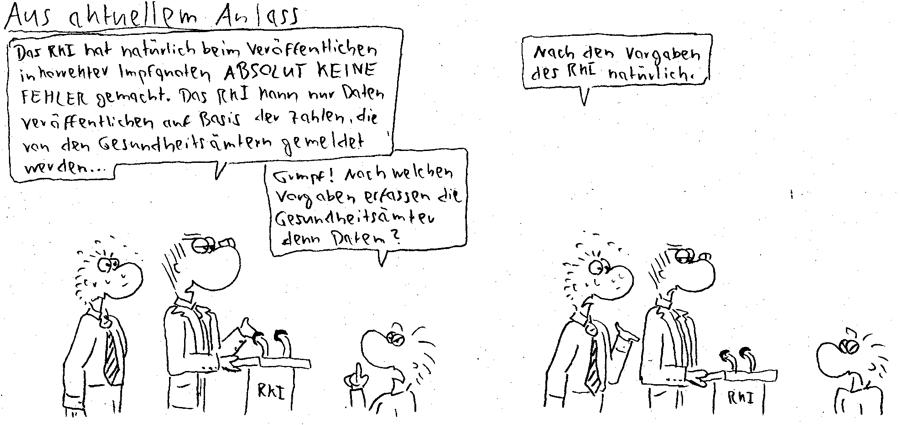 Aus aktuellem Anlass
Das RKI hat natürlich beim Veröffentlichen
inkorrekter Impfquoten ABSOLUT KEINE
FEHLER gemacht. Das RKI kann nur Daten
veröffentlichen auf Basis der Zahlen, die
von den Gesundheitsämtern gemeldet
werden...
Grmpf! Nach welchen
Vorgaben erfassen die
Gesundheitsämter
denn Daten?
RKI
Nach den Vorgaben
des RKI natürlich.
RKI